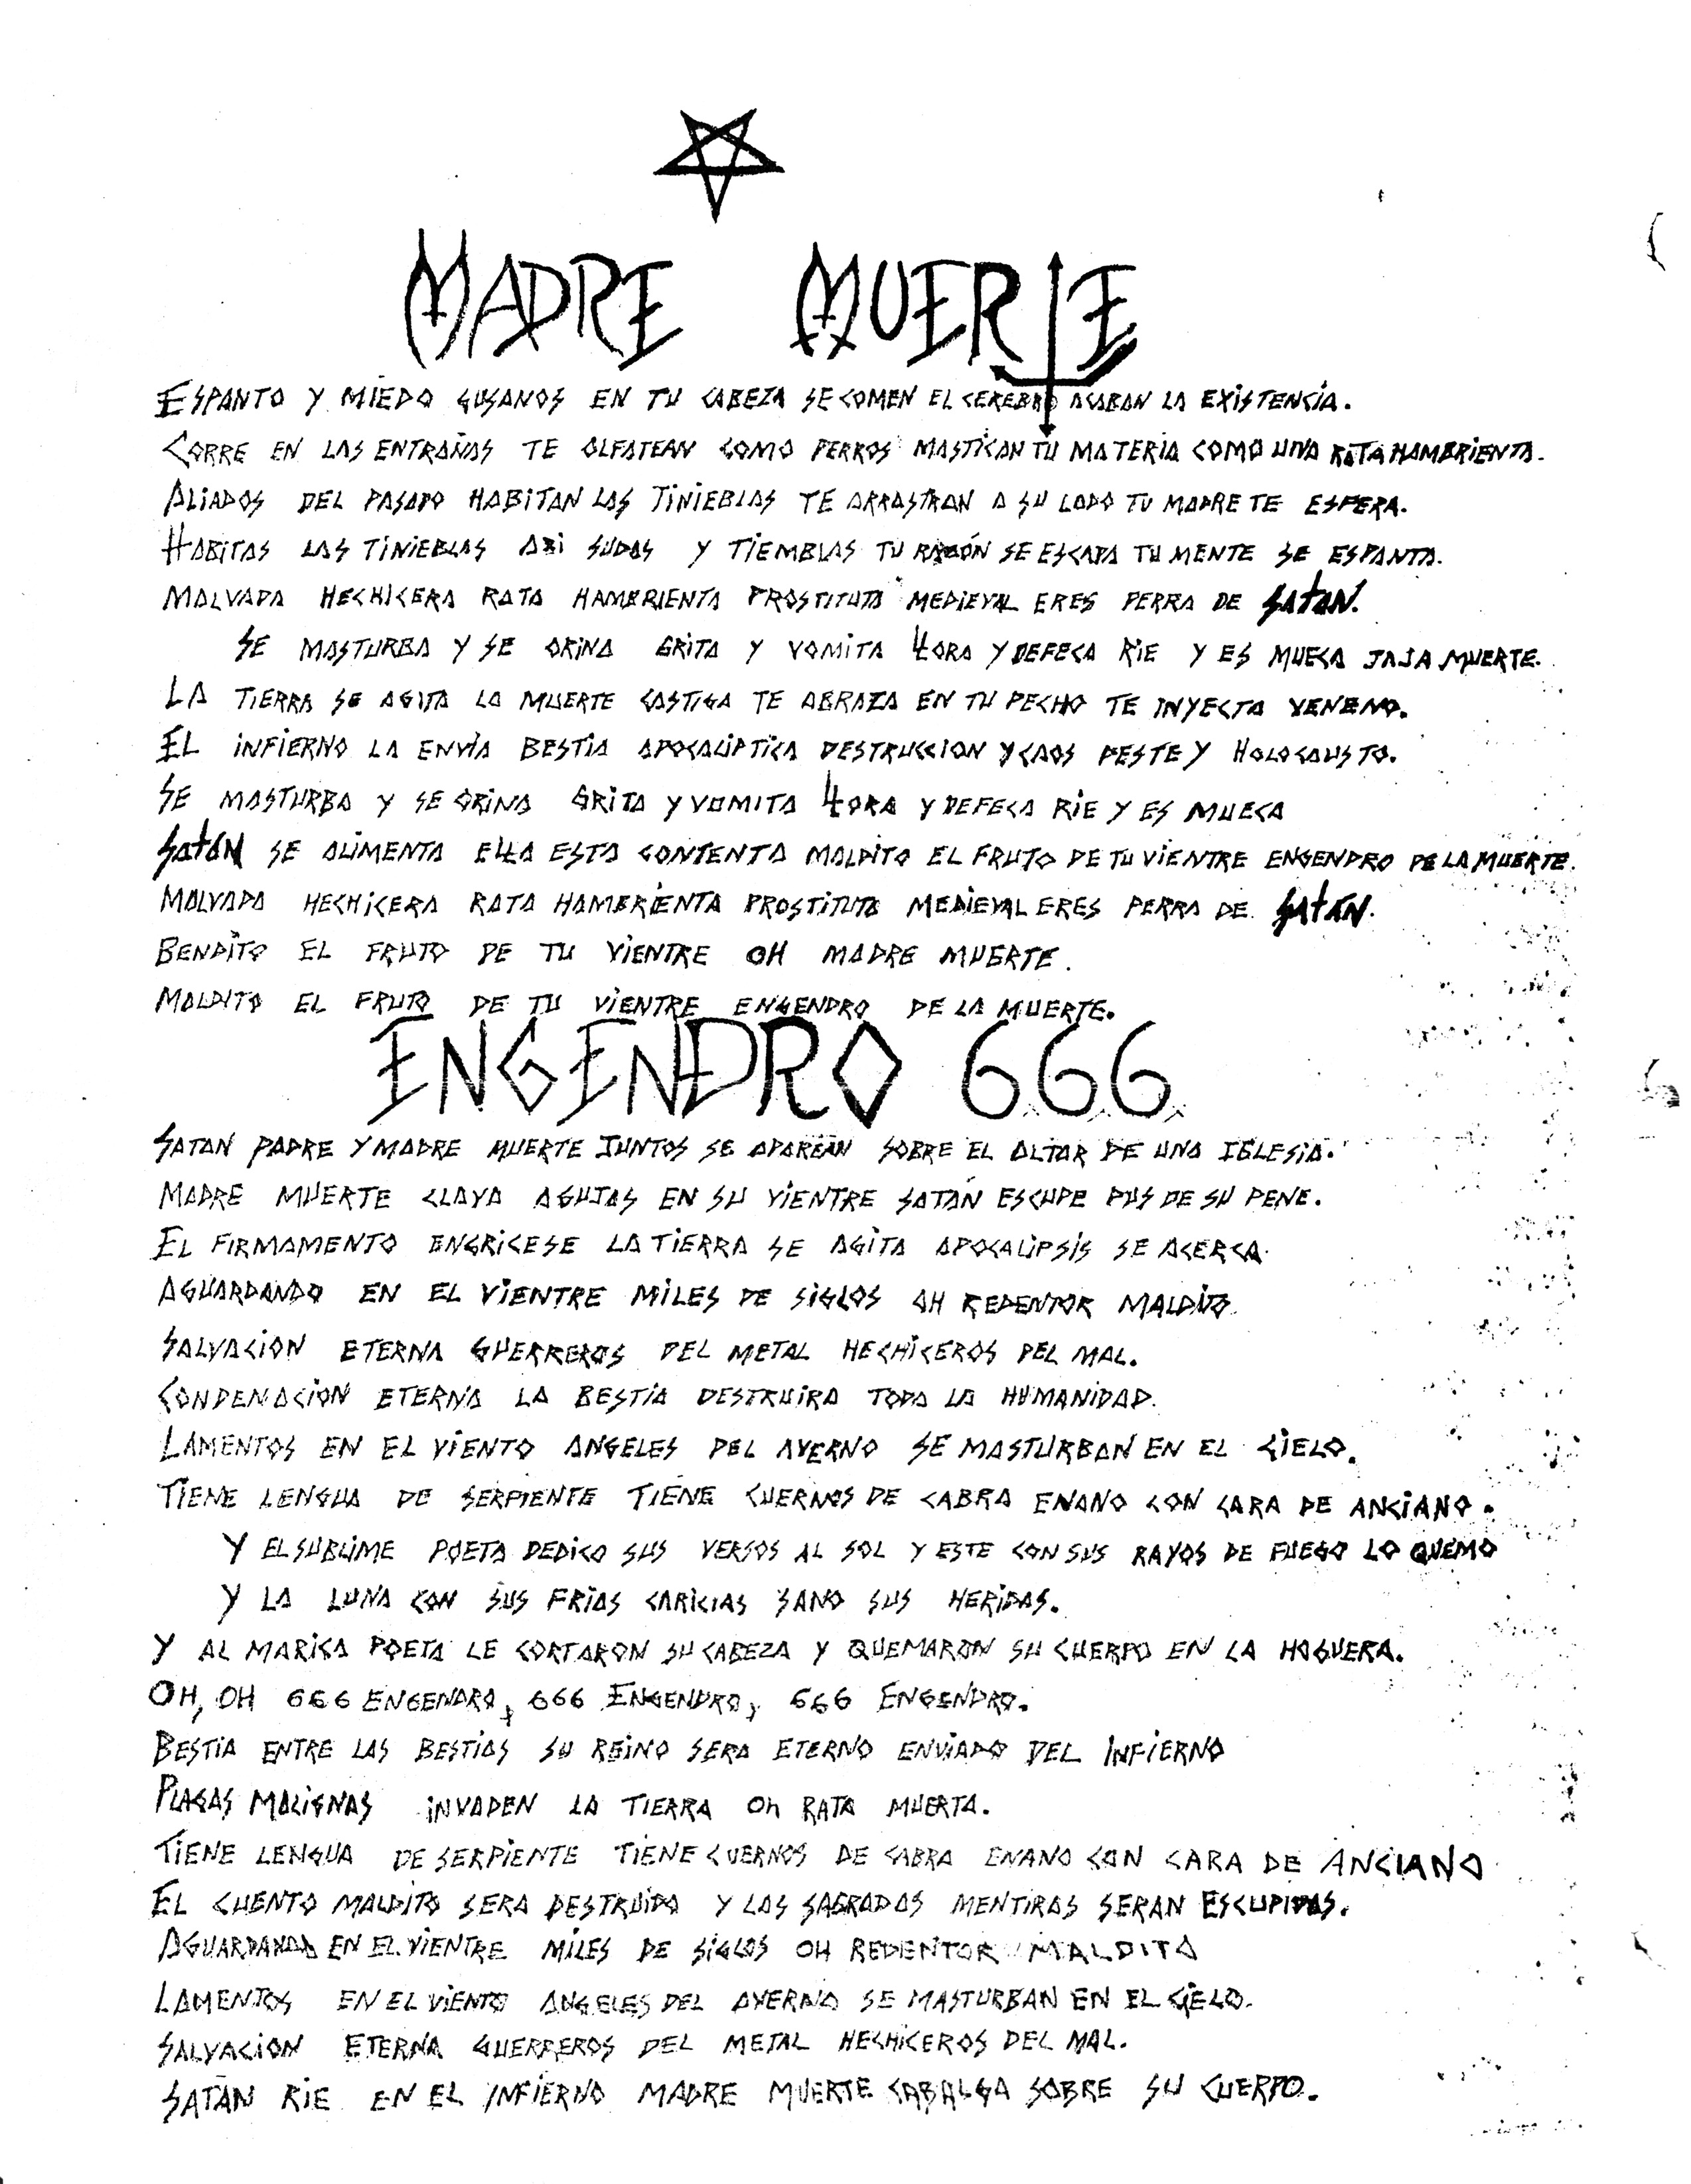 MADRE MUERTE
ESPANTO Y MIEDO GUSANOS EN TU CABEZA SE COMEN EL CEREBRO ACABAN LA EXISTENCIA.
CORRE EN LAS ENTRAÑAS TE OLFATEAN COMO PERROS MASTICAN TU MATERIA COMO UNA RATA HAMBRIENTA.
ALIADOS DEL PASADO HABITAN LAS TINIEBLAS TE ARRASTRAN A SU LADO TU MADRE TE ESPERA.
HABITAS LAS TINIEBLAS ASI SUDAS Y TIEMBLAS TU RAZÓN SE ESCAPA TU MENTE SE ESPANTA.
MALVADA HECHICERA RATA HAMBRIENTA PROSTITUTA MEDIEVAL ERES PERRA DE SATAN.
SE MASTURBA Y SE ORINA GRITA Y VOMITA LLORA Y DEFECA RIE Y ES MUECA JAJA MUERTE.
LA TIERRA SE AGITA LA MUERTE CASTIGA TE ABRAZA EN TU PECHO TE INYECTA VENENO.
EL INFIERNO LA ENVÍA BESTIA APOCALIPTICA DESTRUCCION Y CAOS PESTE Y HOLOCAUSTO.
SE MASTURBA Y SE ORINA GRITA Y VOMITA LLORA Y DEFECA RIE Y ES MUECA
SATÁN SE ALIMENTA ELLA ESTA CONTENTA MALDITO EL FRUTO DE TU VIENTRE ENGENDRO DE LA MUERTE.
MALVADA HECHICERA RATA HAMBRIENTA PROSTITUTA MEDIEVAL ERES PERRA DE SATAN.
BENDITO EL FRUTO DE TU VIENTRE OH MADRE MUERTE.
MALDITO EL FRUTO DE TU VIENTRE ENGENDRO DE LA MUERTE.
ENGENDRO 666
SATAN PADRE Y MADRE MUERTE JUNTOS SE APAREAN SOBRE EL ALTAR DE UNA IGLESIA.
MADRE MUERTE CLAVA AGUJAS EN SU VIENTRE SATÁN ESCUPE PUS DE SU PENE.
EL FIRMAMENTO ENGRICESE LA TIERRA SE AGITA APOCALIPSIS SE ACERCA.
AGUARDANDO EN EL VIENTRE MILES DE SIGLOS OH REDENTOR MALDITO
SALVACION ETERNA GUERREROS DEL METAL HECHICEROS DEL MAL.
CONDENACION ETERNA LA BESTIA DESTRUIRA TODA LA HUMANIDAD.
LAMENTOS EN EL VIENTO ANGELES DEL AVERNO SE MASTURBAN EN EL CIELO.
TIENE LENGUA DE SERPIENTE TIENE CUERNOS DE CABRA ENANO CON CARA DE ANCIANO.
Y EL SUBLIME POETA DEDICO SUS VERSOS AL SOL Y ESTE CON SUS RAYOS DE FUEGO LO QUEMO
Y LA LUNA CON SUS FRIAS CARICIAS SANO SUS HERIDAS.
Y AL MARICA POETA LE CORTARON SU CABEZA Y QUEMARON SU CUERPO EN LA HOGUERA.
OH, OH 666 ENGENDRO, 666 ENGENDRO, 666 ENGENDRO.
BESTIA ENTRE LAS BESTIAS SU REINO SERA ETERNO ENVIADO DEL INFIERNO
PLAGAS MALIGNAS INVADEN LA TIERRA OH RATA MUERTA.
TIENE LENGUA DE SERPIENTE TIENE CUERNOS DE CABRA ENANO CON CARA DE ANCIANO
EL CUENTO MALDITO SERA DESTRUIDO Y LAS SAGRADAS MENTIRAS SERAN ESCUPIDAS.
AGUARDANDO EN EL VIENTRE MILES DE SIGLOS OH REDENTOR MALDITO
LAMENTOS EN EL VIENTO ANGELES DEL AVERNO SE MASTURBAN EN EL CIELO.
SALVACION ETERNA GUERREROS DEL METAL HECHICEROS DEL MAL.
SATÁN RIE EN EL INFIERNO MADRE MUERTE CABALGA SOBRE SU CUERPO.